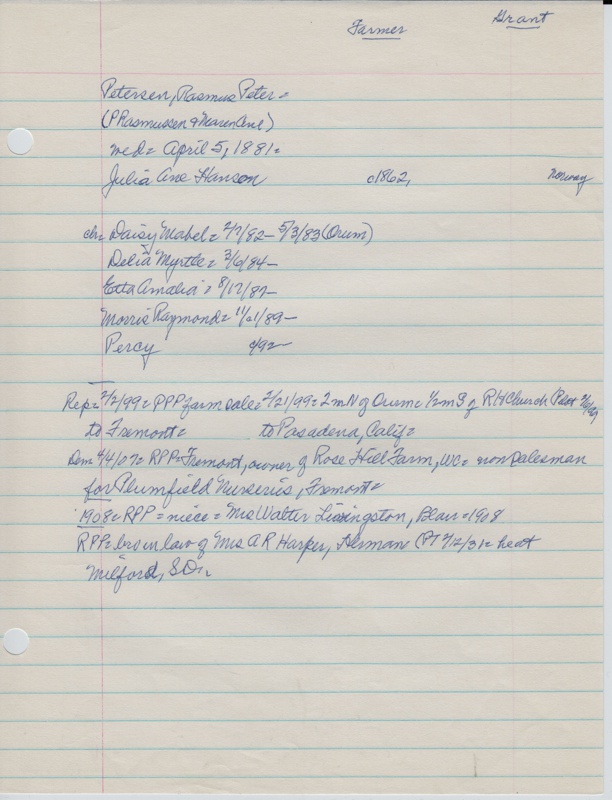 Farmer Grant
Petersen, Rasmus Peter=
(P Rasmussen & Maren Ane)
md= April 5, 1881=
Julia Ane Hanson c1862, Norway
ch= Daisy Mabel= 2/7/82- 5/3/83 (Orum)
Delia Myrtle= 3/6/84-
Etta Amalia= 8/17/87-
Morris Raymond= 11/21/89-
Percy c/92-
Rep= 2/2/99= RPP farm sale= 2/21/99= 2 m N of Orum= 1/2 m S of R H Church (Pilot
to Fremont= to Pasadena, Calif=
Dem 4/4/07= RPP= Fremont, owner of Rose Hill Farm, WC= now salesman
for Plumfield Nurseries, Fremont=
1908= RPP= niece= Mrs Walter Livingston, Blair= 1908
RPP= bro in law of Mrs A R Harper, Herman (PT 7/2/31= heat
Milford, SD,